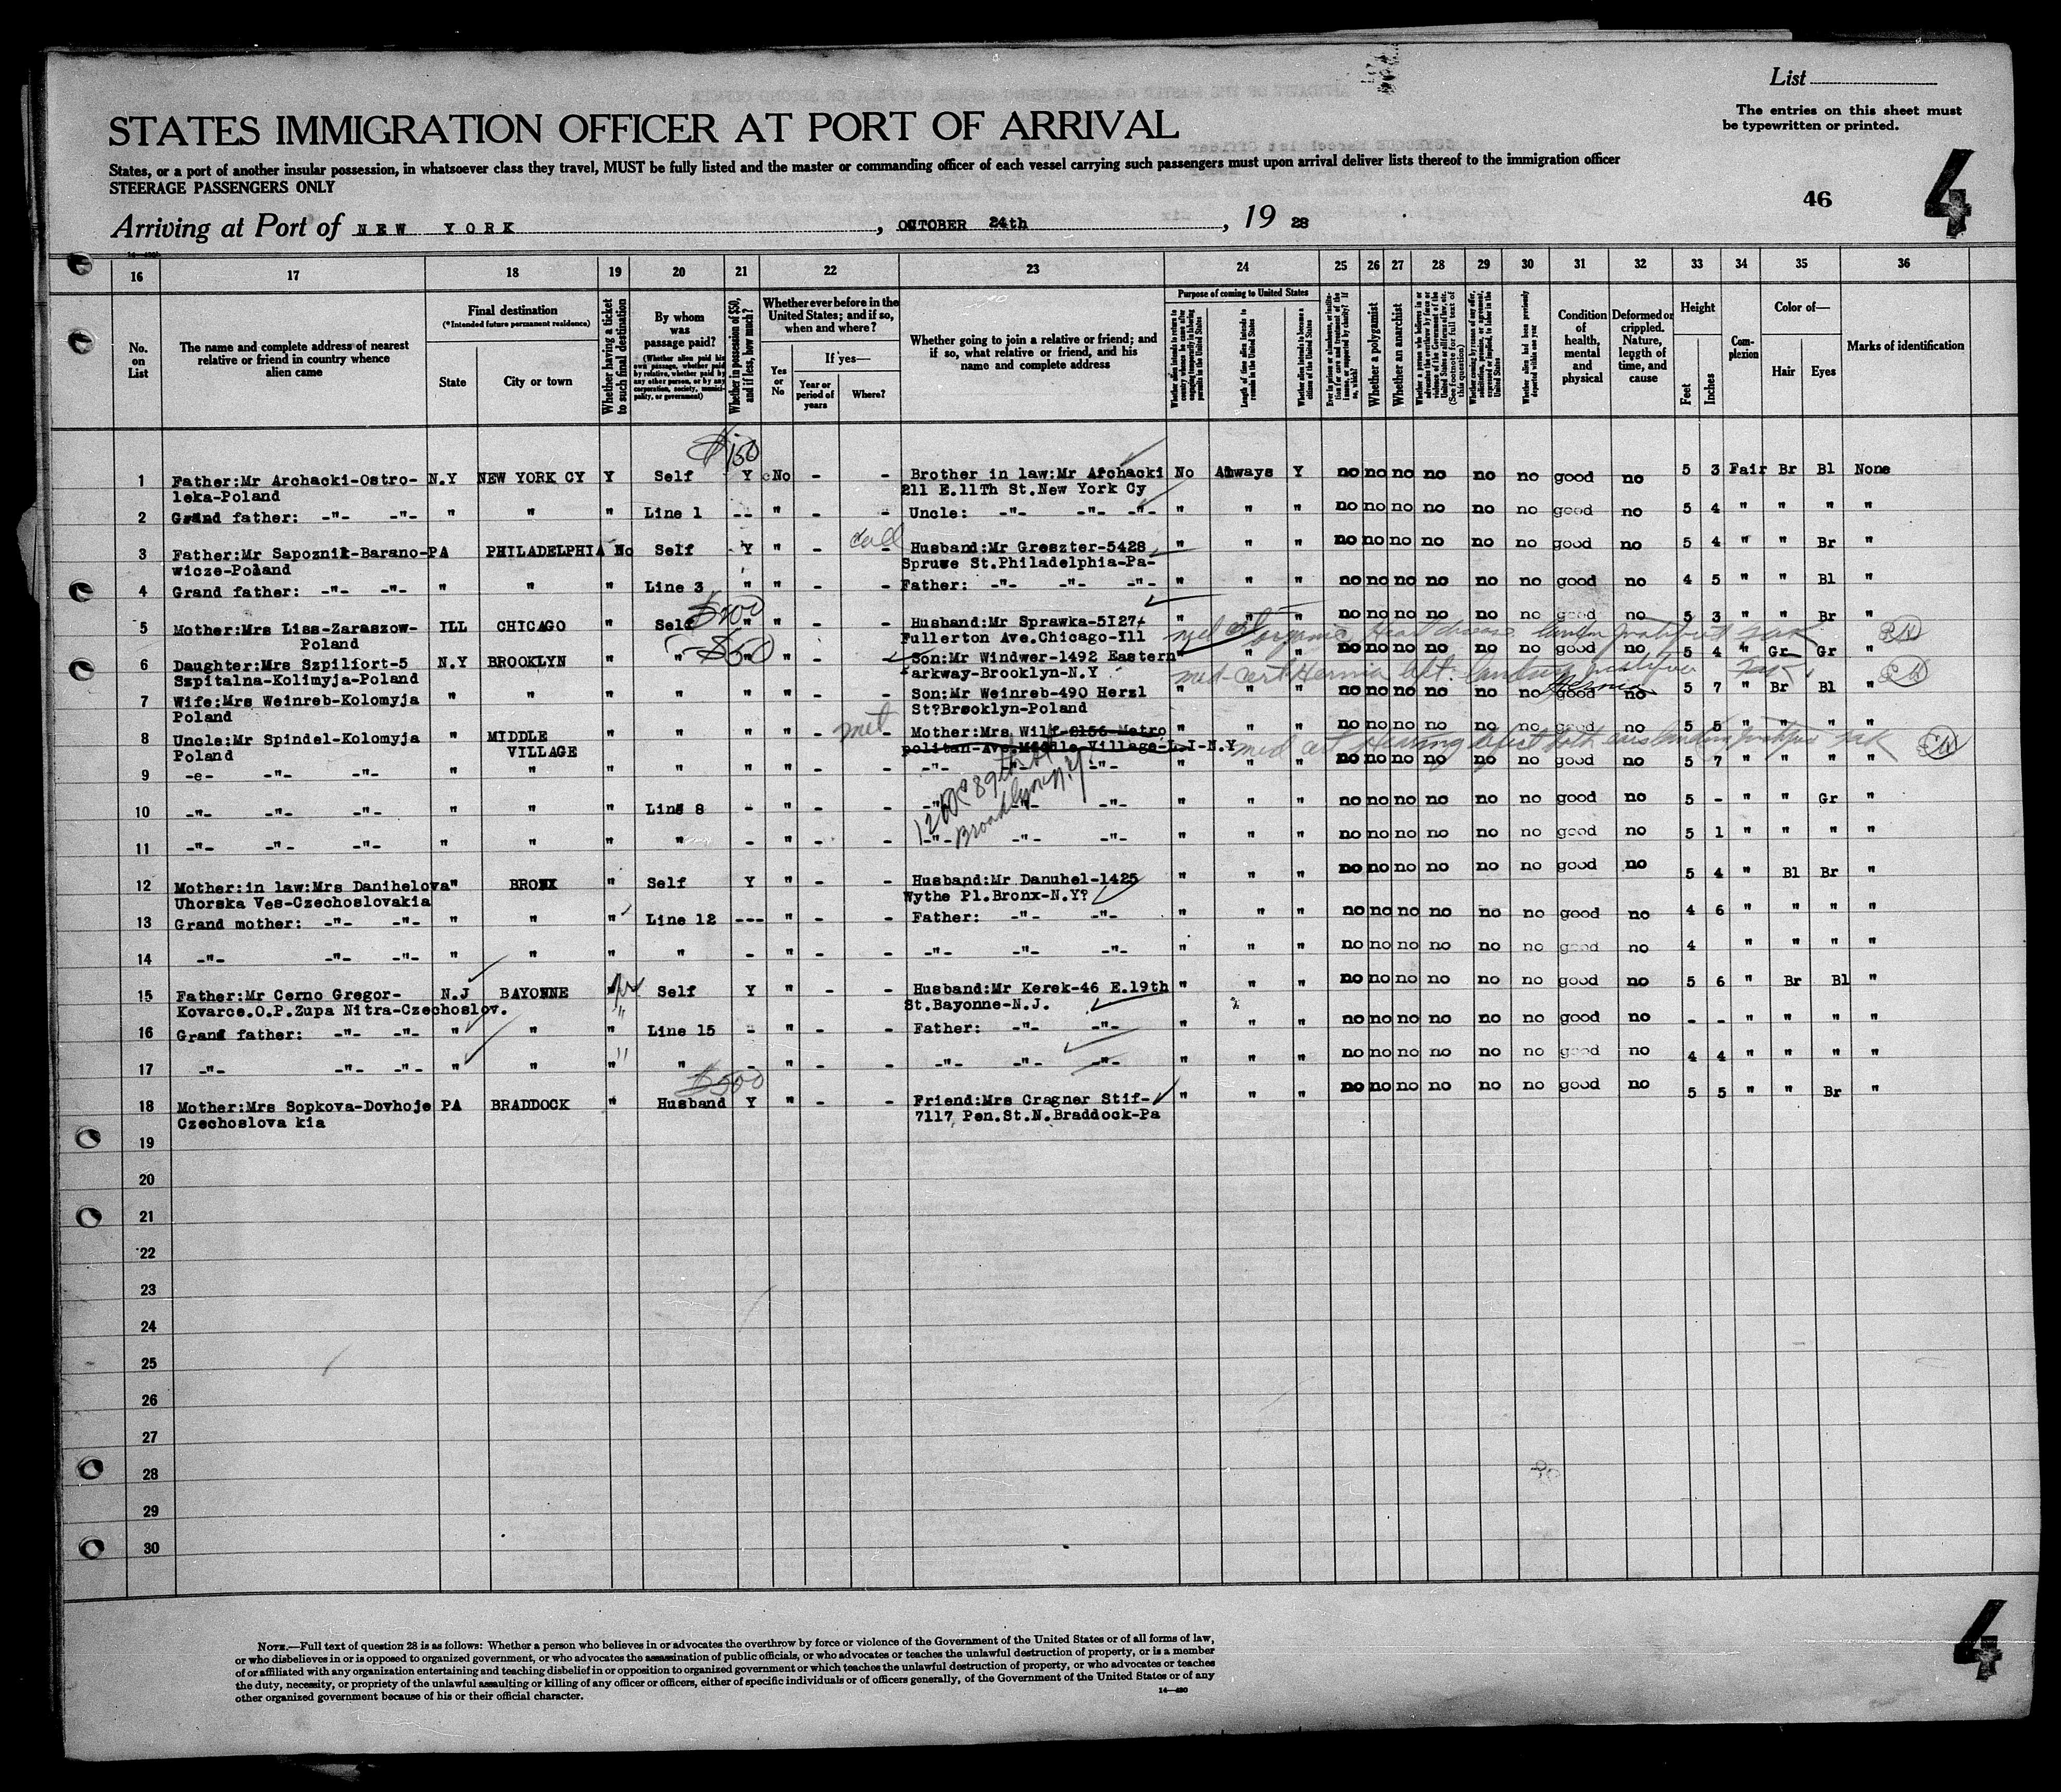 List
The entries on this sheet must
be typewritten or printed.
STATES IMMIGRATION OFFICER AT PORT OF ARRIVAL
States, or a port of another insular possession, in whatsoever class they travel, MUST be fully listed and the master or commanding officer of each vessel carrying such passengers must upon arrival deliver lists thereof to the immigration officer
STEERAGE PASSENGERS ONLY
46 4
Arriving at Port of NEW YORK, OCTOBER 24th, 19 28
16 17 18 19 20 21 22 23 24 25 26 27 28 29 30 31 32 33 34 35 36
No. on List
The name and complete address of nearest relative or friend in country whence alien came
Final destination
(*Intended future permanent residence)
State
City or town
Whether having a ticket to such final destination
By whom was passage paid?
(Whether alien paid his own passage, whether paid by relative, whether paid by any other person, or by any corporation, society, municipality, or government)
Whether in possession of $50, and if less, how much?
Whether ever before in the United States; and if so, when and where?
Yes or No
If yes—
Year or period of years
Where?
Whether going to join a relative or friend; and if so, what relative or friend, and his name and complete address
Purpose of coming to United States
Length of time alien intends to remain in the United States
Whether alien intends to become a citizen of the United States
Whether a polygamist
Whether an anarchist
Condition of health, mental and physical
Deformed or crippled. Nature, length of time, and cause
Height
Feet
Inches
Complexion
Color of—
Hair
Eyes
Marks of identification
$150
1 Father:Mr Archacki-Ostro- N.Y NEW YORK CY Y Self Y No - - Brother in law:Mr Archacki No Always Y no no no no no no good no 5 3 Fair Br Bl None
leka-Poland 211 E.11Th St.New York Cy
2 Grand father: -"- -"- " " " Line 1 -- " - - Uncle: -"- -"- -"- " " " no no no no no no good no 5 4 " " " "
3 Father:Mr Sapoznik-Barano- PA PHILADELPHIA No Self Y " - - Husband:Mr Greszter-5428 " " " no no no no no no good no 5 4 " " Br "
wicze-Poland Spruwe St.Philadelphia-Pa-
4 Grand father: -"- -"- " " " Line 3 " " - - Father: -"- -"- -"- " " " no no no no no no good no 4 5 " " Bl "
5 Mother:Mrs Liss-Zaraszow- ILL CHICAGO " Self " " - Husband:Mr Sprawka-5I27 " " " no no no no no no good no 5 3 " " Br "
Poland Fullerton Ave.Chicago-Ill
6 Daughter:Mrs Szpilfort-5 N.Y BROOKLYN " " $50 " - Son:Mr Windwer-1492 Eastern " " " no no no no no no good no 5 4 " Gr Gr "
Szpitalna-Kolimyja-Poland arkway-Brooklyn-N.Y
7 Wife:Mrs Weinreb-Kolomyja " " " " " " - - Son:Mr Weinreb-490 Herzl " " " no no no no no no good no 5 7 " Br Bl "
Poland St?Brooklyn-Poland
8 Uncle:Mr Spindel-Kolomyja " MIDDLE " " " " - - Mother:Mrs Wilf-8156-Metro " " " no no no no no no good no 5 5 " " " "
Poland VILLAGE politan-Ave.Middle Village-L.I-N.Y
9 -e- -"- -"- " " " " " " - - -"- -"- -"- " " " no no no no no no good no 5 7 " " " "
10 -"- -"- -"- " " " Line 8 - " - - -"- -"- -"- " " " no no no no no no good no 5 - " " Gr "
Brooklyn N.Y.
11 -"- -"- -"- " " " " - " - - -"- -"- -"- " " " no no no no no no good no 5 1 " " " "
12 Mother:in law:Mrs Danihelova " BRONX " Self Y " - - Husband:Mr Danuhel-1425 " " " no no no no no no good no 5 4 " Bl Br "
Uhorska Ves-Czechoslovakia Wythe Pl.Bronx-N.Y?
13 Grand mother: -"- -"- " " " Line 12 --- " - - Father: -"- -"- " " " no no no no no no good no 4 6 " " " "
14 -"- -"- -"- " " " " - " - - -"- -"- -"- " " " no no no no no no good no 4 " " " "
15 Father:Mr Cerno Gregor- N.J BAYONNE " Self Y " - - Husband:Mr Kerek-46 E.19th " " " no no no no no no good no 5 6 " Br Bl "
Kovarce.O.P.Zupa Nitra-Czechoslov. St.Bayonne-N.J.
16 Grand father: -"- -"- " " " Line 15 - " - - Father: -"- -"- " " " no no no no no no good no - - " " " "
17 -"- -"- -"- " " " " - " - - -"- -"- -"- " " " no no no no no no good no 4 4 " " " "
$500
18 Mother:Mrs Sopkova-Dovhoje PA BRADDOCK " Husband Y " - - Friend:Mrs Cragner Stif- " " " no no no no no no good no 5 5 " " Br "
Czechoslova kia 7117 Pen.St.N.Braddock-Pa
19
20
21
22
23
24
25
26
27
28
29
30
NOTE.—Full text of question 28 is as follows: Whether a person who believes in or advocates the overthrow by force or violence of the Government of the United States or of all forms of law,
or who disbelieves in or is opposed to organized government, or who advocates the assassination of public officials, or who advocates or teaches the unlawful destruction of property, or is a member
of or affiliated with any organization entertaining and teaching disbelief in or opposition to organized government or which teaches the unlawful destruction of property, or who advocates or teaches
the duty, necessity, or propriety of the unlawful assaulting or killing of any officer or officers, either of specific individuals or of officers generally, of the Government of the United States or of any
other organized government because of his or their official character.
14—430
4